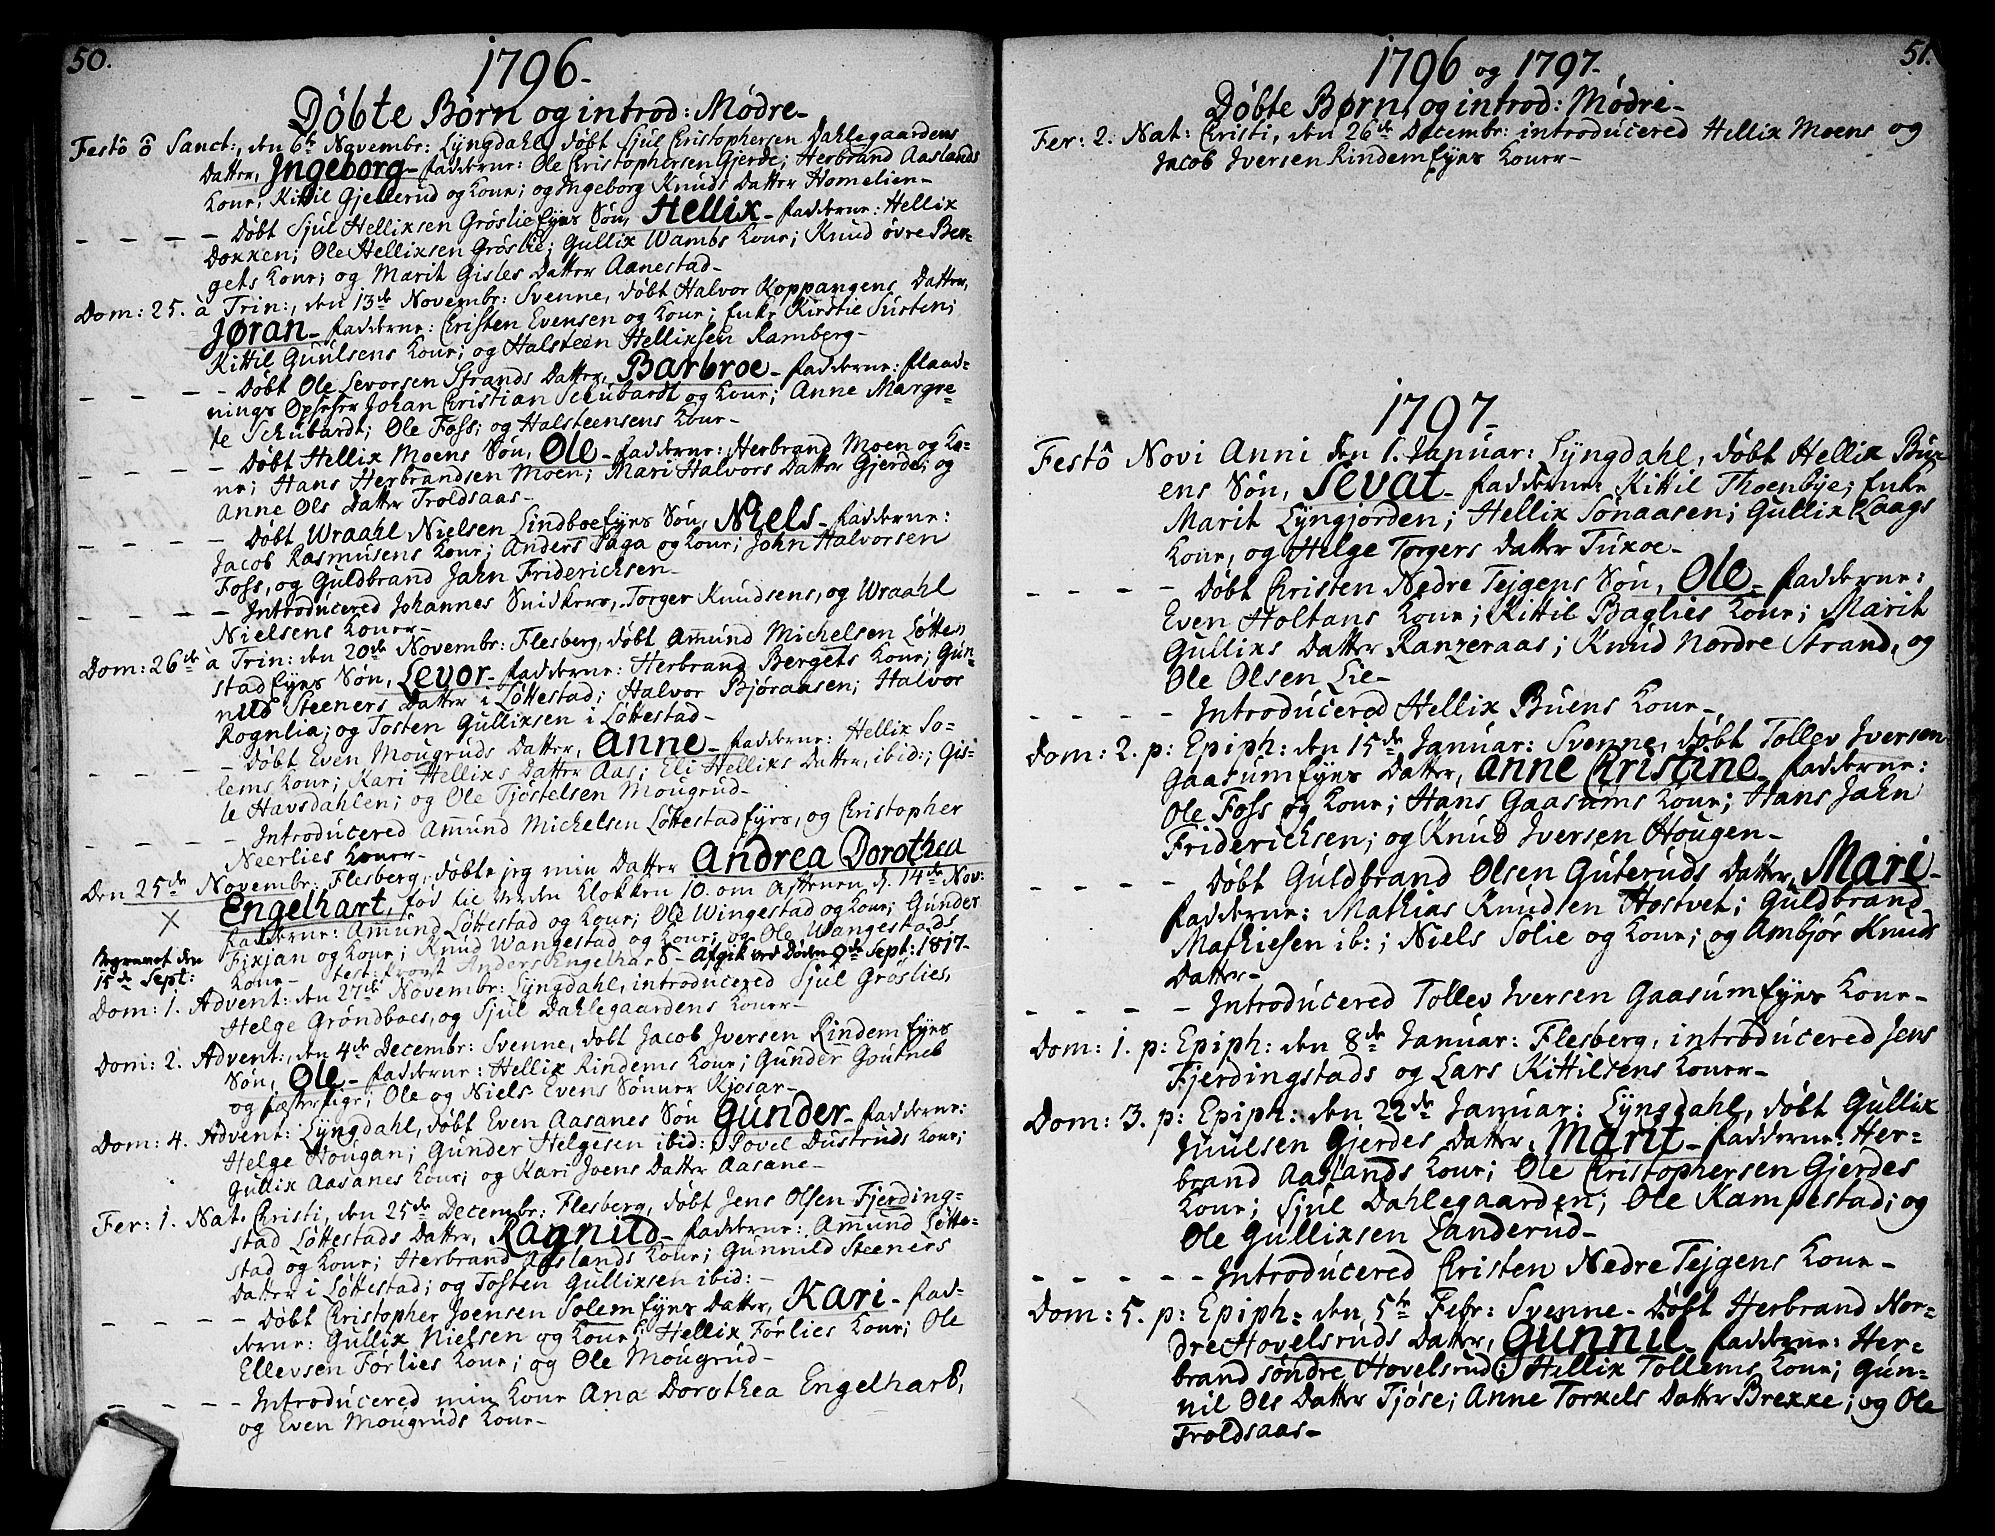 50.
1796-
Døbte Børn og introd: Mødre-
Festô ô Sanct:, den 6te Novembr: Lÿngdahl, døbt Sjul Christophersen Dahlegaardens
Datter, Ingeborg- fadderne: Ole Christophersen Gjerde; Herbrand Aaslands
Kone; Kittil Gjellerud og Kone; og Ingeborg Knuds Datter Homelien-
- - - - Døbt Sjul Hellixsen Grøslie Eyes Søn, Hellix- fadderne: Hellix
Doxxen; Ole Hellixsen Grøslie; Gullix Wambs Kone; Knud øvre Ber-
gets Kone; og Marit Gisles Datter Aanestad-
Dom: 25. à Trin:, den 13de Novembr: Svenne, døbt Halvor Koppangens Datter,
Jøran- fadderne: Christen Evensen og Kone; Enke Kirstie Surten;
Kittil Guulsens Kone; og Halsteen Hellixsen Ramberg-
- - - - Døbt Ole Levorsen Strands Datter, Barbroe- fadderne: Flaad-
nings Opseer Johan Christian Schubardt og Kone; Anne Margre-
te Schubardt; Ole Foss; og Halsteensens Kone-
- - - - Døbt Hellix Moens Søn, Ole- fadderne: Herbrand Moen og Ko-
ne; Hans Herbrandsen Moen; Mari Halvors Datter Gjerde; og
Anne Ols Datter Troldsaas-
- - - - Døbt Wraahl Nielsen Lindboe Eyes Søn, Niels- fadderne:
Jacob Rasmusens Kone; Anders Saga og Kone; John Halvorsen
Foss, og Guldbrand Jahn Friderichsen-
- - - - Introducered Johannes Snidkers, Torger Knudsens, og Wraahl
Nielsens Koner-
Dom: 26de à Trin: den 20de Novembr: Flesberg, døbt Amund Michelsen Løtte-
stad Eyes Søn, Levor- fadderne: Herbrand Bergets Kone; Gun-
nild Steeners Datter i Løttestad; Halvor Bjøraasen; Halvor
Rognlia; og Tosten Gullixsen i Løttestad-
- - - - Døbt Even Mougruds Datter, Anne- fadderne: Hellix So-
lems Kone; Kari Hellixs Datter Aas; Eli Hellixs Datter, ibid:; Gis-
le Havsdahlen; og Ole Tjøstelsen Mougrud-
- - - - Introducered Amund Michelsen Løttestad Eyes, og Christopher
Neerlies Koner-
Den 25de Novembr: Flesberg, døbte jeg min Datter Andrea Dorothea
X Engelhart, fød til Verden Klokken 10. om Aftenen d. 14de Nov:
fadderne: Amund Løttestad og Kone; Ole Wingestad og Kone; Gunder
Fixjan og Kone; Knud Wangestad og Kone; og Ole Wangestads
Begravet den
15de Sept:
Kone- test: Anders Engelhart- Afgik ved Døden 9de Sept: 1817-
Dom: 1. Advent: den 27de Novembr: Lÿngdahl, introducered Sjul Grøslies,
Helge Grøndboes, og Sjul Dahlegaardens Koner-
Dom: 2. Advent:, den 4de Decembr: Svenne, døbt Jacob Iversen Rindem Eyes
Søn, Ole- fadderne: Hellix Rindems Kone; Gunder Goutneb
og Fæstepige; Ole og Niels Evens Sønner Kjosar-
Dom: 4. Advent: Lÿngdahl, døbt Even Aasanes Søn Gunder- fadderne:
Helge Hougan; Gunder Helgesen ibid: Povel Dustruds Kone;
Gullix Aasanes Kone; og Kari Joens Datter Aasane-
Fer: 1. Nat. Christi, den 25de Decembr: Flesberg, døbt Jens Olsen Fjerding-
stad Løttestads Datter, Ragnild- fadderne: Amund Løtte-
stad og Kone; Herbrand Aaslands Kone; Gunnild Steeners
Datter i Løttestad; og Tosten Gullixsen ibid:-
- - - - Døbt Christopher Joensen Solem Eyes Datter, Kari- fad-
derne: Gullix Nielsen og Kone; Hellix Førlies Kone; Ole
Ellevsen Førlies Kone; og Ole Mougrud-
- - - - Introducered min Kone Ana Dorothea Engelhart,
og Even Mougruds Kone-
51.
1796 og 1797-
Døbte Børn og introd: Mødre-
Fer: 2. Nat: Christi, den 26de Decembr: introducered Hellix Moens og
Jacob Iversen Rindem Eyes Koner-
1797-
Festô Novi Anni den 1. Januar: Lÿngdahl, døbt Hellix Bu-
ens Søn, Sevat- fadderne: Kittil Thoenbye; Enke
Marit Lÿngjorden; Hellix Sønaasen; Gullix Kaags
Kone, og Helge Torgers Datter Tuxoe-
- - - - Døbt Christen Nedre Tejgens Søn, Ole- fadderne:
Even Holtans Kone; Kittil Baglies Kone; Marit
Gullixs Datter Ranzeraas; Knud Nordre Strand, og
Ole Olsen Lie-
- - - - Introducered Hellix Buens Kone-
Dom: 2. p: Epiph: den 15de Januar: Svenne, døbt Tollev Iversen
Gaasum Eyes Datter, Anne Christine- fadderne:
Ole Foss og Kone; Hans Gaasums Kone; Hans Jahn
Friderichsen; og Knud Iversen Hougen-
- - - - Døbt Guldbrand Olsen Guteruds Datter, Mari-
fadderne: Mathias Knudsen Hostvet; Guldbrand
Mathiesen ib:; Niels Solie og Kone; og Ambjør Knuds
Datter-
- - - - Introducered Tollev Iversen Gaasum Eyes Kone-
Dom: 1. p: Epiph: den 8de Januar: Flesberg, introducered Jens
Fjerdingstads og Lars Kittilsens Koner-
Dom: 3. p: Epiph: den 22de Januar: Lÿngdahl, døbt Gullix
Juulsen Gjerdes Datter, Marit- fadderne: Her-
brand Aaslands Kone; Ole Christophersen Gjerdes
Kone; Sjul Dahlegaarden; Ole Kampestad; og
Ole Gullixsen Landerud-
- - - - - Introducered Christen Nedre Tejgens Kone-
Dom: 5. p: Epiph: den 5te Febr: Svenne- Døbt Herbrand Nor-
dre Hovelsruds Datter, Gunnil- fadderne: Her-
brand søndre Hovelsrud; Hellix Tollems Kone; Gun-
nil Ols Datter Tjøse; Anne Torkels Datter Brekke; og Ole
Troldsaas-